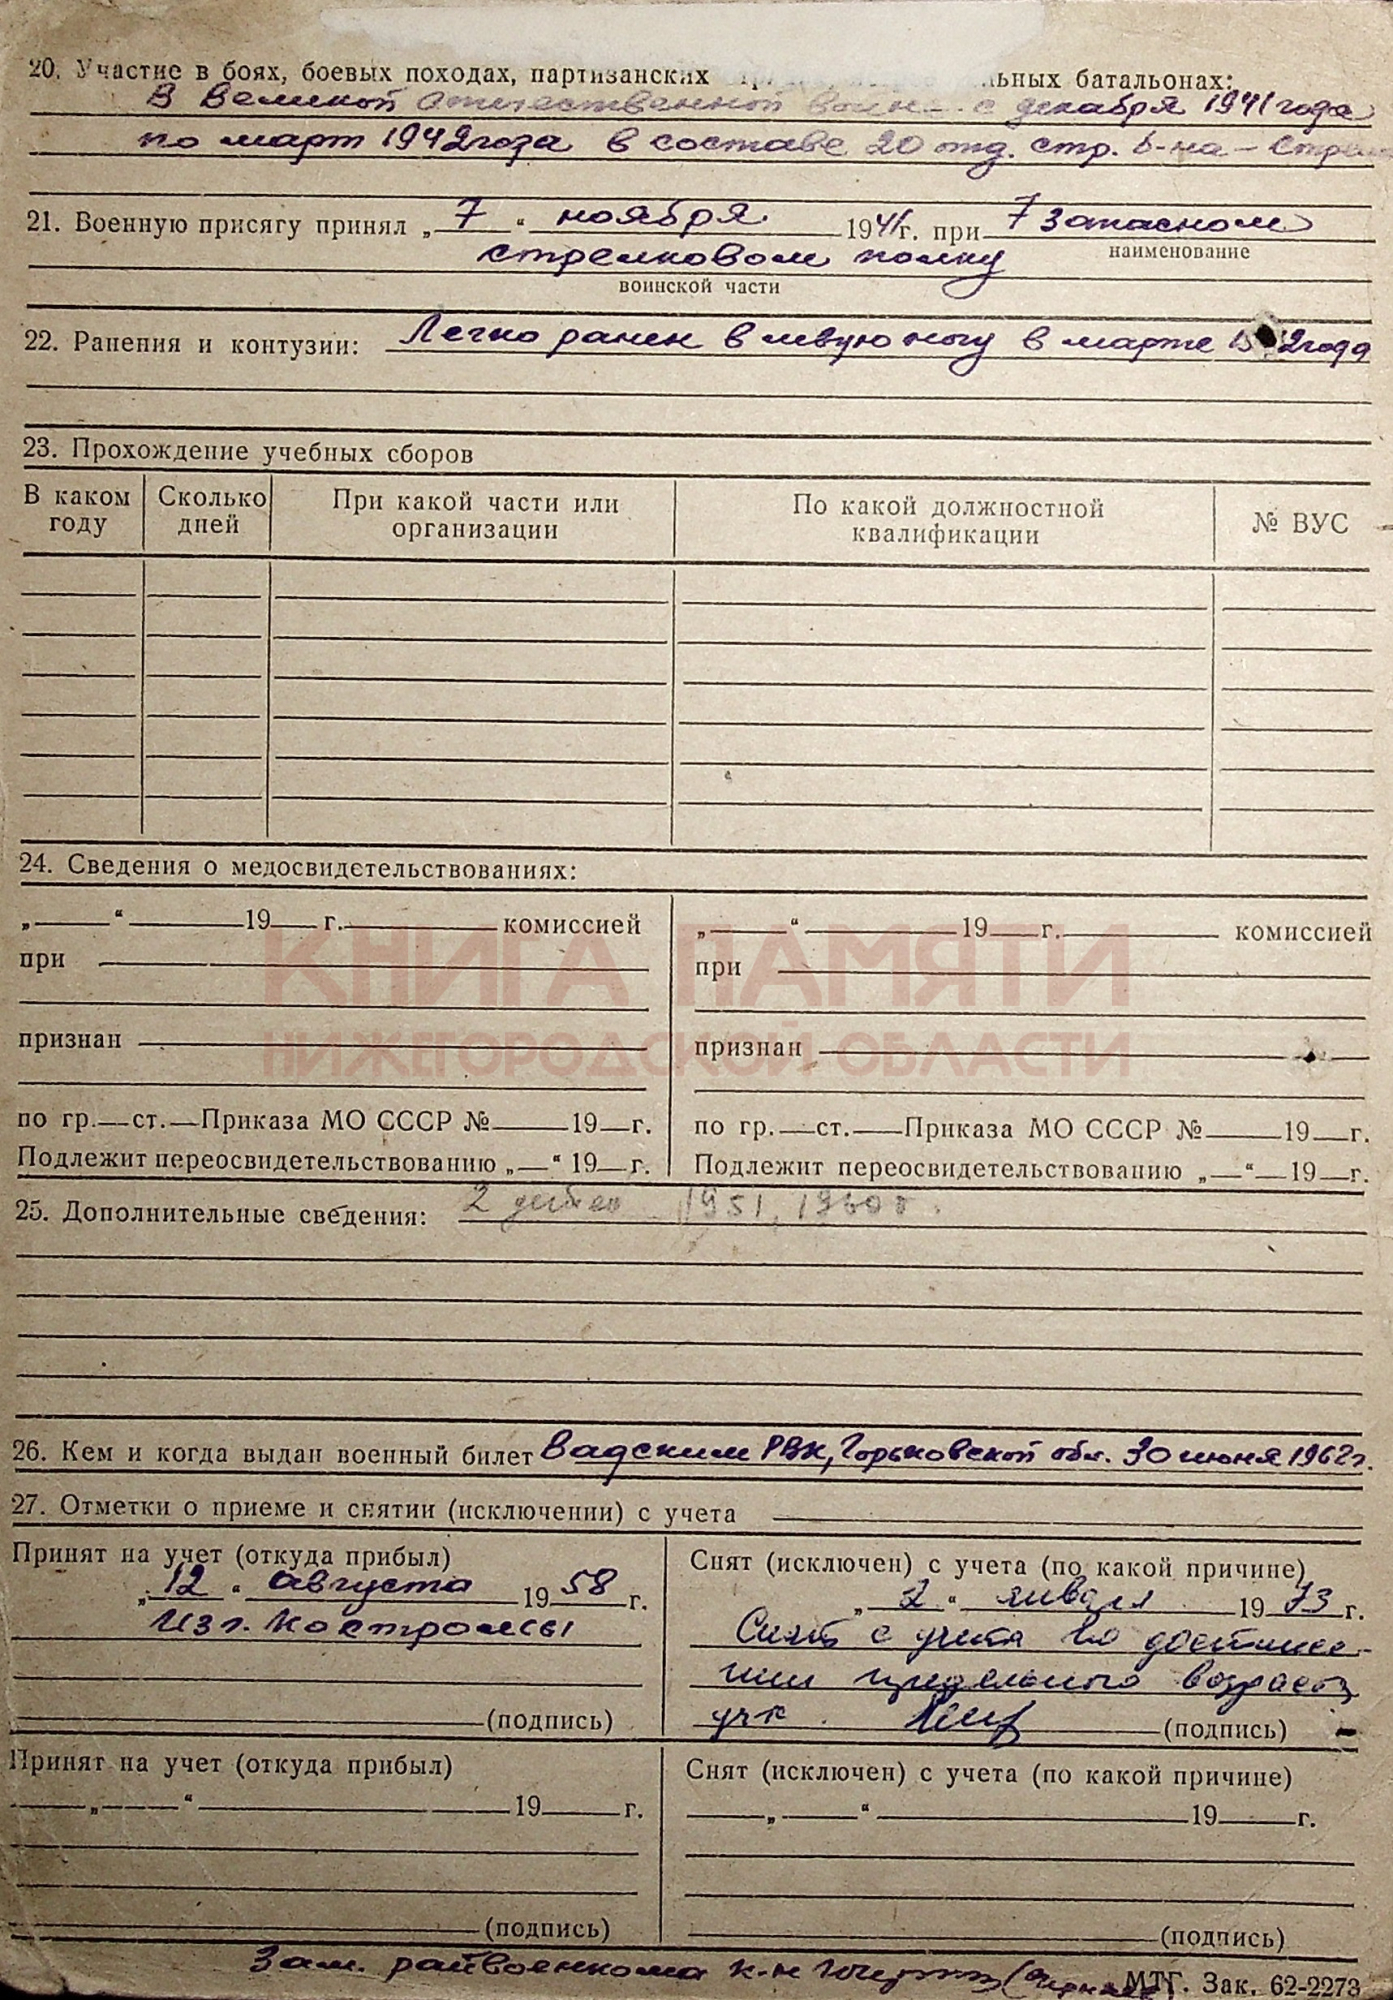 20. Участие в боях, боевых походах, партизанских льных батальонах:
В Великой Отечественной войне с декабря 1941 года
по март 1942 года в составе 20 отд. стр. б-на –
21. Военную присягу принял „ 7 “ ноября 1941 г. при 7 запасном
наименование
стрелковом полку
воинской части
22. Ранения и контузии: Легко ранен в левую ногу в марте года
23. Прохождение учебных сборов
В каком году Сколько дней При какой части или организации По какой должностной квалификации № ВУС
24. Сведения о медосвидетельствованиях:
„ “ 19 г. комиссией „ “ 19 г. комиссией
при при
КНИГА ПАМЯТИ
НИЖЕГОРОДСКОЙ ОБЛАСТИ
признан признан
по гр. ст. Приказа МО СССР № 19 г. по гр. ст. Приказа МО СССР № 19 г.
Подлежит переосвидетельствованию „ “ 19 г. Подлежит переосвидетельствованию „ “ 19 г.
25. Дополнительные сведения: 2 детей 1951, 1960 г.
26. Кем и когда выдан военный билет Вадским РВК, Горьковской обл. 30 июня 1962 г.
27. Отметки о приеме и снятии (исключении) с учета
Принят на учет (откуда прибыл) Снят (исключен) с учета (по какой причине)
„ 12 “ августа 1958 г. „ 2 “ января 1973 г.
Из г. Костромы Снят с учета по достиже-
нии предельного возраста
(подпись) (подпись)
Принят на учет (откуда прибыл) Снят (исключен) с учета (по какой причине)
„ “ 19 г. „ “ 19 г.
(подпись) (подпись)
Зам. райвоенкома к-н
МТГ. Зак. 62-2273